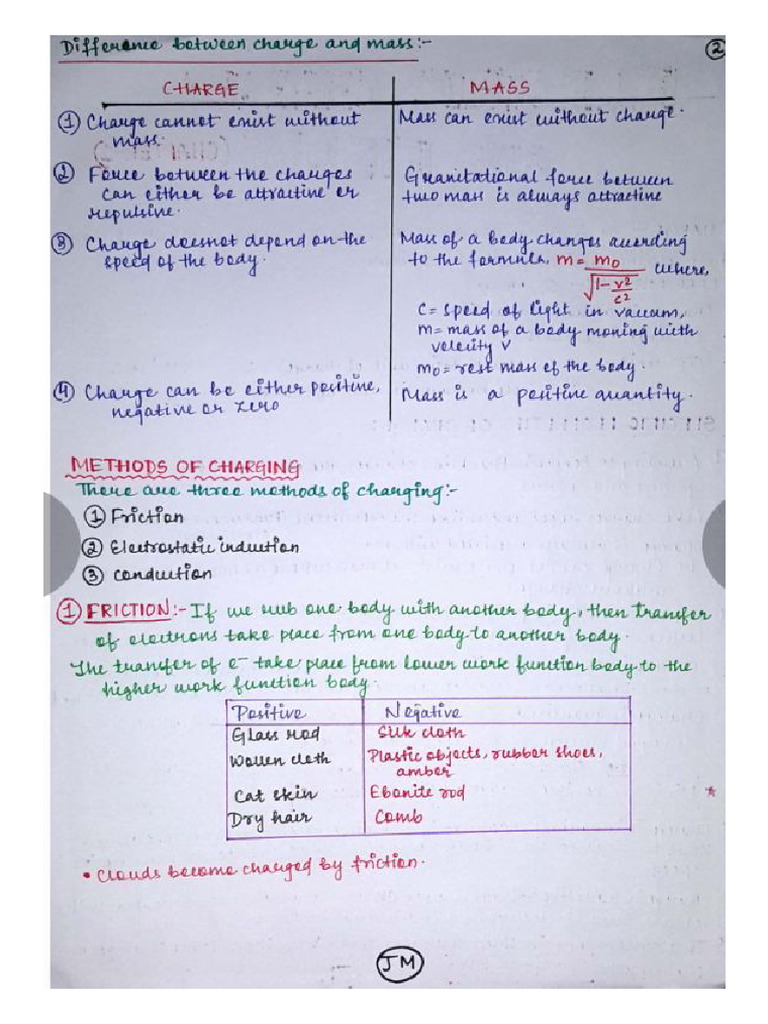 Difference between charge and mass:-
2
CHARGE MASS
① Charge cannot exist without Mass can exist without charge.
mass.
② Force between the charges Gravitational force between
can either be attractive or two mass is always attractive
repulsive.
③ Charge doesnot depend on the Mass of a body changes according
speed of the body. to the formula, m = m₀/√(1 - v²/c²) where,
C = speed of light in vaccum,
m = mass of a body moving with
velocity v
m₀ = rest mass of the body.
④ Charge can be either positive, Mass is a positive quantity.
negative or zero
METHODS OF CHARGING
There are three methods of charging:-
① Friction
② Electrostatic induction
③ Conduction
① FRICTION:- If we rub one body with another body, then transfer
of electrons take place from one body to another body.
The transfer of e⁻ take place from lower work function body to the
higher work function body.
Positive Negative
Glass rod Silk cloth
Woolen cloth Plastic objects, rubber shoes,
amber
Cat skin Ebonite rod
Dry hair Comb
• Clouds become charged by friction.
JM